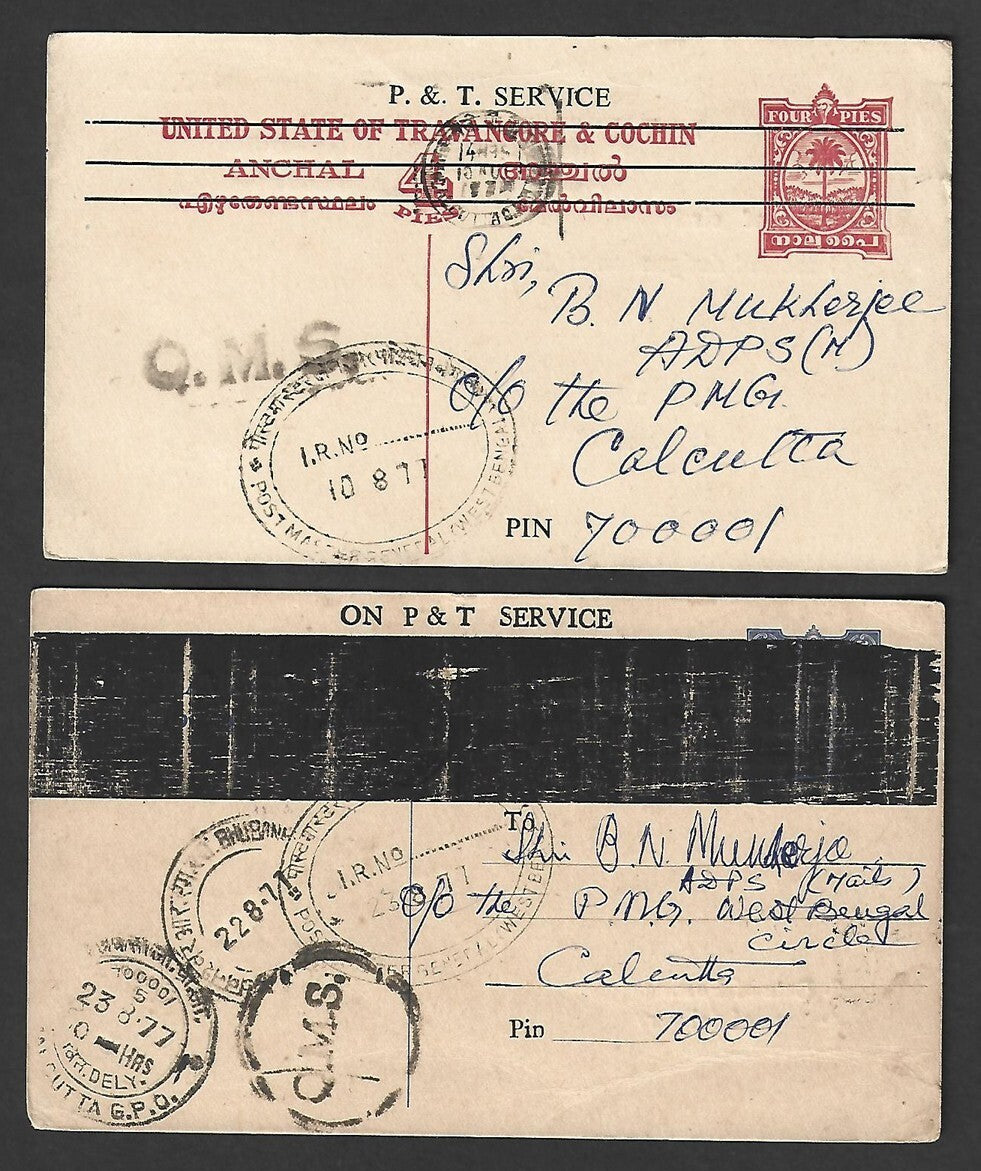 P. & T. SERVICE
UNITED STATE OF TRAVANCORE & COCHIN
FOUR PIES
ANCHAL 4 അഞ്ചൽ
എഴുതേണ്ടസ്ഥലം PIES മേൽവിലാസം
നാലു പൈ
Shri,
B. N Mukherjee
ADPS (M)
Q.M.S
C/O the PMG.
Calcutta
I.R.No
10 8 77
POST MASTER GENERAL (WEST BENGAL)
PIN 700001
ON P & T SERVICE
To,
Shri B. N. Mukherjee
ADPS (Mails)
C/O the PMG. West Bengal
Circle
Calcutta
Pin 700001
I.R.No
23 8 77
22 8.77
700001
5
23 8.77
HRS
DELY.
CALCUTTA G.P.O.
Q.M.S.